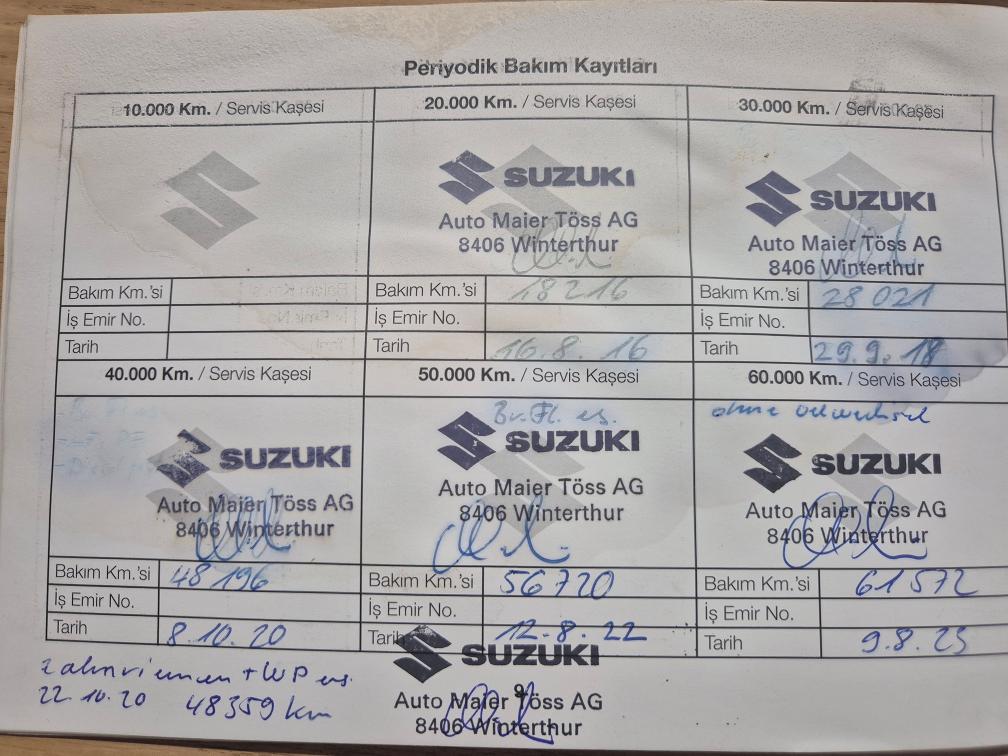 Periyodik Bakım Kayıtları
10.000 Km. / Servis Kaşesi
20.000 Km. / Servis Kaşesi
30.000 Km. / Servis Kaşesi
SUZUKI
Auto Maier Töss AG
8406 Winterthur
SUZUKI
Auto Maier Töss AG
8406 Winterthur
Bakım Km.'si
İş Emir No.
Tarih
Bakım Km.'si 18216
İş Emir No.
Tarih 16.8.16
Bakım Km.'si 28021
İş Emir No.
Tarih 29.9.18
40.000 Km. / Servis Kaşesi
50.000 Km. / Servis Kaşesi
60.000 Km. / Servis Kaşesi
SUZUKI
Auto Maier Töss AG
8406 Winterthur
Br. Fl. ers.
SUZUKI
Auto Maier Töss AG
8406 Winterthur
ohne Oelwechsel
SUZUKI
Auto Maier Töss AG
8406 Winterthur
Bakım Km.'si 48196
İş Emir No.
Tarih 8.10.20
Bakım Km.'si 56720
İş Emir No.
Tarih 12.8.22
Bakım Km.'si 61572
İş Emir No.
Tarih
Zahnriemen + WP ers.
22.10.20 48359 km
SUZUKI
9
Auto Maier Töss AG
8406 Winterthur